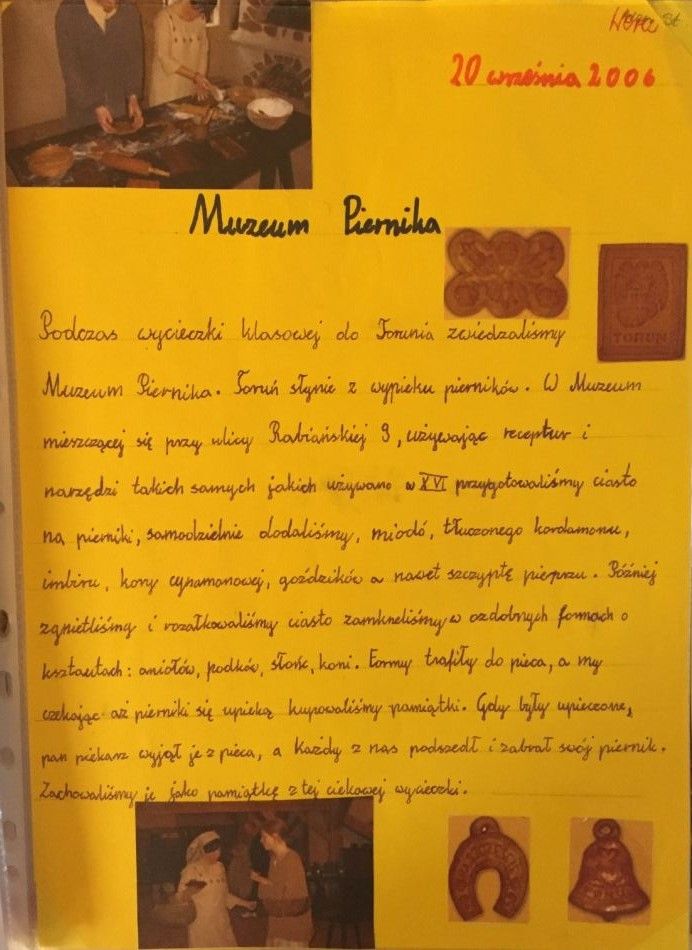 20 września 2006
Muzeum Piernika
TORUŃ
Podczas wycieczki klasowej do Torunia zwiedzaliśmy
Muzeum Piernika. Toruń słynie z wypieku pierników. W Muzeum
mieszczącej się przy ulicy Rabiańskiej 9, używając receptur i
narzędzi takich samych jakich używano w XVI przygotowaliśmy ciasto
na pierniki, samodzielnie dodaliśmy, miodó, tłuczonego kardamonu,
imbiru, kory cynamonowej, goździków a nawet szczyptę pieprzu. Później
zgnietliśmy i rozałkowaliśmy ciasto zamkneliśmy w ozdobnych formach o
kształtach: aniołów, podków, słońc, koni. Formy trafiły do pieca, a my
czekając aż pierniki się upieką kupowaliśmy pamiątki. Gdy były upieczone,
pan piekarz wyjął je z pieca, a każdy z nas podszedł i zabrał swój piernik.
Zachowaliśmy je jako pamiątkę z tej ciekawej wycieczki.